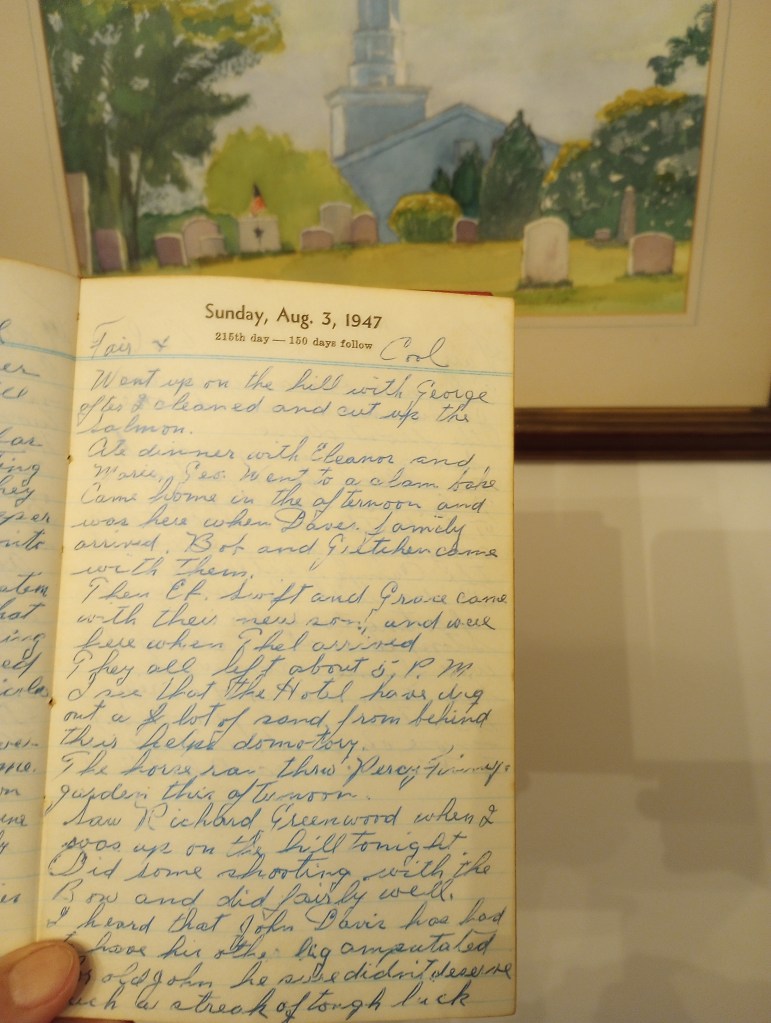 Sunday, Aug. 3, 1947
215th day — 150 days follow
Fair & Cool
Went up on the hill with George
after I cleaned and cut up the
salmon.
Ate dinner with Eleanor and
Marie, Geo. Went to a clam bake
Came home in the afternoon and
was here when Daves family
arrived. Bob and Gretchen came
with them.
Then Ek. Swift and Grace came
with their new son, and were
here when Thel arrived
They all left about 5, P. M.
I see that the Hotel have dug
out a lot of sand from behind
their helps domotory.
The horse ran thru Percy
garden this afternoon.
Saw Richard Greenwood when I
was up on the hill tonight.
Did some shooting with the
Bow and did fairly well.
I heard that John Davis has had
have his other leg amputated
old John he sure didn't deserve
such a streak of tough luck